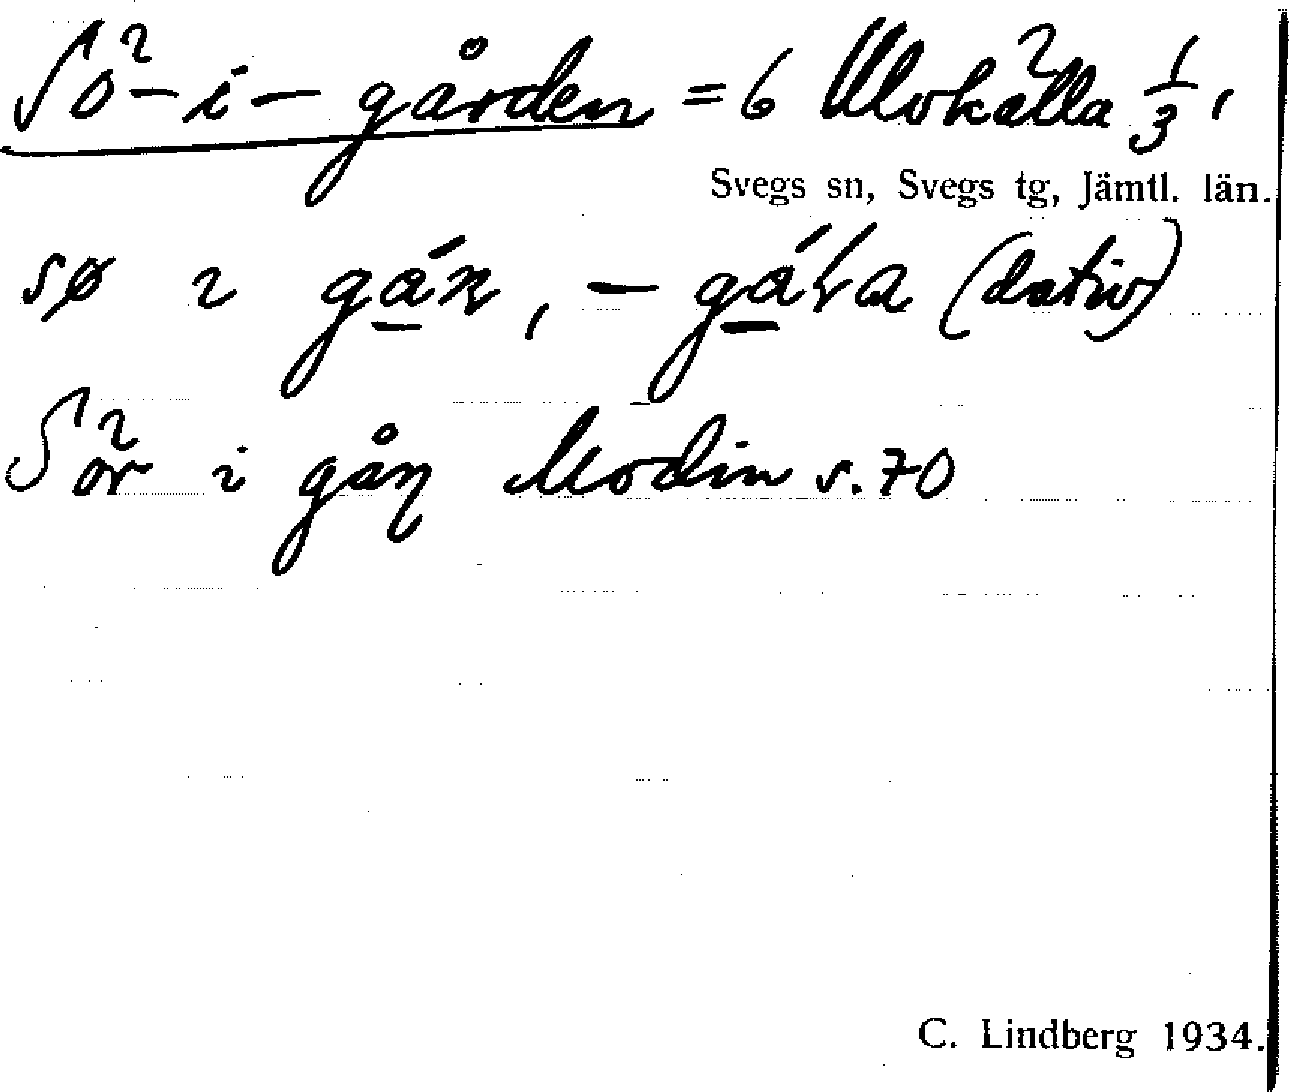 Sö-i-gården = 6 Ulvkälla 1/3,
Svegs sn, Svegs tg, Jämtl. län.
sø i (dativ)
Sör i gåŋ Modin s. 70
C. Lindberg 1934.